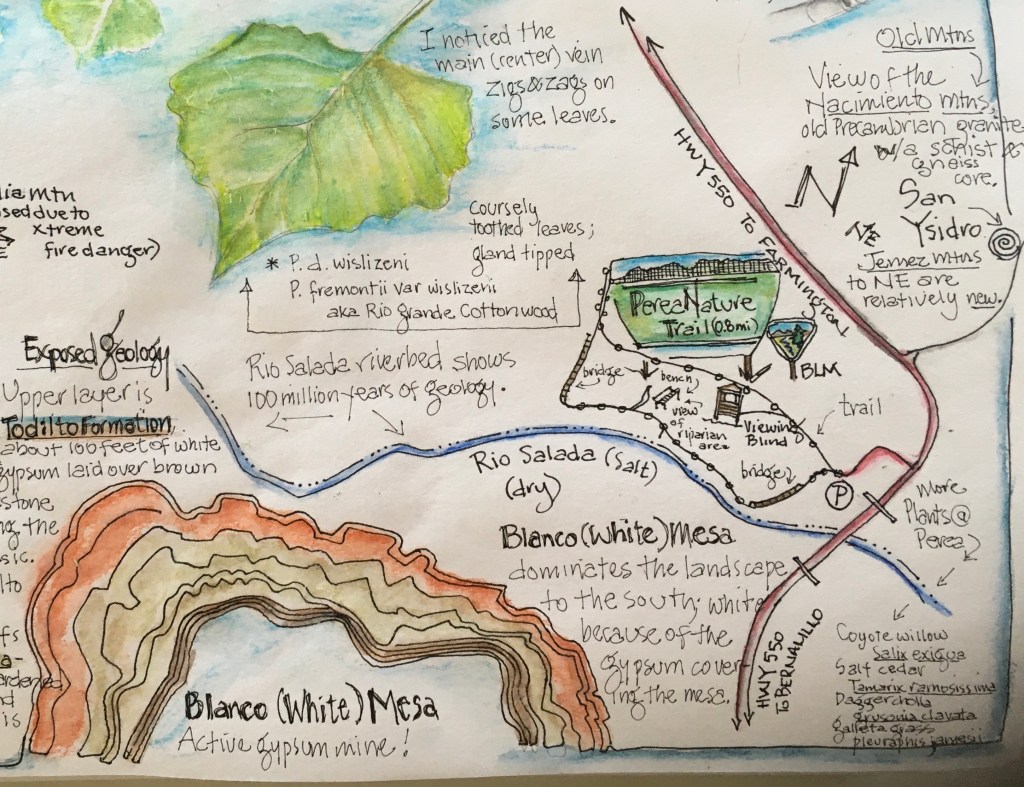 I noticed the
main (center) vein
zigs & zags on
some leaves.
Old Mtns
View of the
Nacimiento Mtns,
old Precambrian granite
w/a schist &
gneiss
core.
N
San
Ysidro
NE
Jemez Mtns
to NE are
relatively new.
HWY 550 TO FARMINGTON
Mtn
due to
xtreme
fire danger)
Coursely
toothed leaves;
gland tipped
* P. d. wislizeni
P. fremontii var wislizeni
aka Rio Grande Cottonwood
Perea Nature
Trail (0.8mi)
BLM
bridge
bench
view
of
riparian
area
Viewing
Blind
trail
bridge
P
Exposed geology
Upper layer is
Todilto Formation
about 100 feet of white
gypsum laid over brown
the
Rio Salada riverbed shows
100 million years of geology.
Rio Salada (Salt)
(dry)
Blanco (White) Mesa
dominates the landscape
to the south; white
because of the
gypsum cover
ing the mesa.
Blanco (White) Mesa
Active gypsum mine!
HWY 550
TO BERNALILLO
More
Plants @
Perea
Coyote willow
Salix exigua
Salt cedar
Tamarix ramosissima
Dagger cholla
grusonia clavata
galleta grass
pleuraphis jamesii